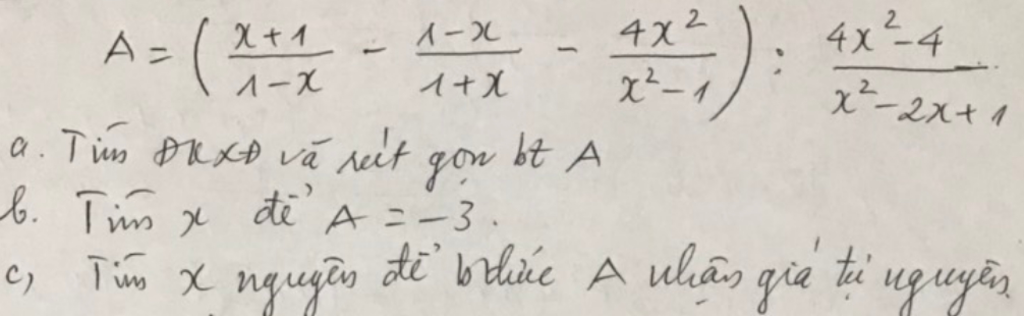 A = ( \frac{x+1}{1-x} - \frac{1-x}{1+x} - \frac{4x^2}{x^2-1} ) : \frac{4x^2-4}{x^2-2x+1}
a. Tìm ĐKXĐ và rút gọn bt A
b. Tìm x để A = -3.
c, Tìm x nguyên để bthức A nhận giá trị nguyên.